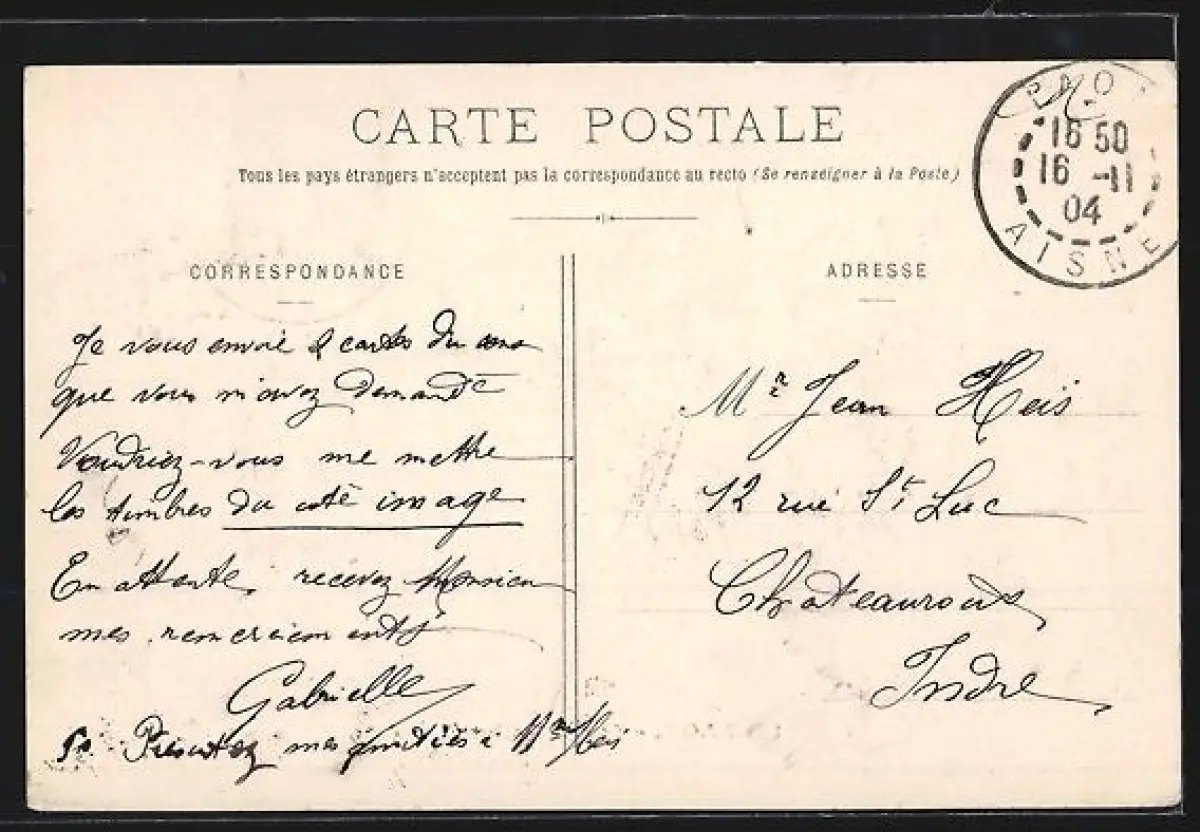 CARTE POSTALE
Tous les pays étrangers n'acceptent pas la correspondance au recto (Se renseigner à la Poste)
16 50
16 -11
04
AISNE
CORRESPONDANCE
ADRESSE
Je vous envoie 2 cartes du
que vous m'avez demandé
Voudriez-vous me mettre
les timbres du coté image
En attente, recevez Monsieur
mes remerciements
Gabrielle
Présentez mes amitiés à Mme Heis
Mr Jean Heïs
12 rue St Luc
Chateauroux
Indre